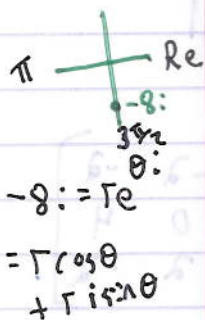 π Re
-8i
3π/2
θi
-8i = re
= r cosθ
+ r i sinθ